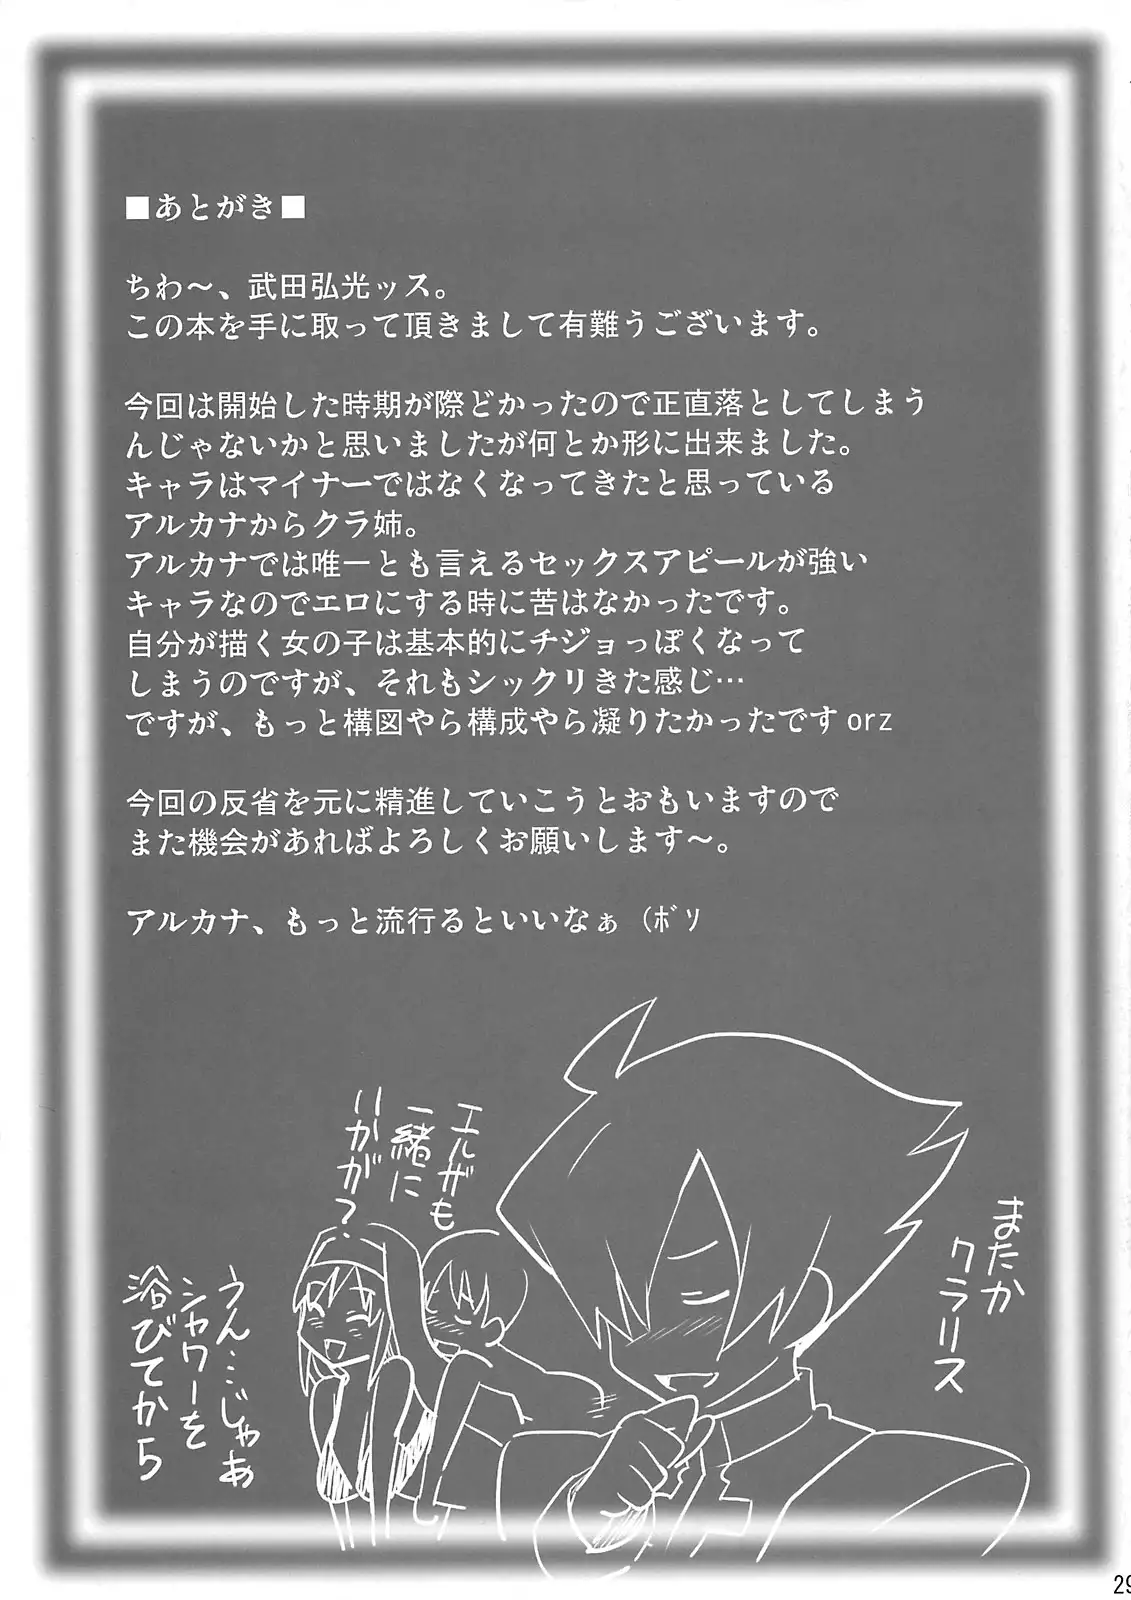 ■あとがき■
ちわ〜、武田弘光ッス。
この本を手に取って頂きまして有難うございます。
今回は開始した時期が際どかったので正直落としてしまう
んじゃないかと思いましたが何とか形に出来ました。
キャラはマイナーではなくなってきたと思っている
アルカナからクラ姉。
アルカナでは唯一とも言えるセックスアピールが強い
キャラなのでエロにする時に苦はなかったです。
自分が描く女の子は基本的にチジョっぽくなって
しまうのですが、それもシックリきた感じ…
ですが、もっと構図やら構成やら凝りたかったですorz
今回の反省を元に精進していこうとおもいますので
また機会があればよろしくお願いします〜。
アルカナ、もっと流行るといいなぁ（ﾎﾞｿ
またか
クラリス
エルザも
一緒に
いかが？
うん…じゃあ
シャワーを
浴びてから
29